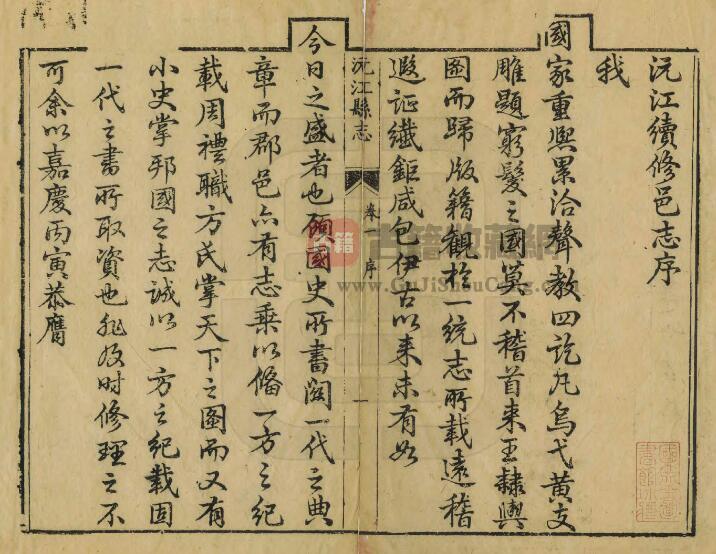 沅江續修邑志序
我
國家重熙累洽聲教四訖凡烏弋黃支
雕題窮髮之國莫不稽首來王隸輿
圖而歸版籍觀於一統志所載遠稽
遐証纖鉅咸包伊古以來未有如
沅江縣志
卷一 序
一
今日之盛者也顧國史所書闡一代之典
章而郡邑亦有志乘以備一方之紀
載周禮職方氏掌天下之圖而又有
小史掌邦國之志誠以一方之紀載固
一代之書所取資也非及時修理之不
可余以嘉慶丙寅恭膺
古籍
古籍收藏網
www.GuJiShouCang.com